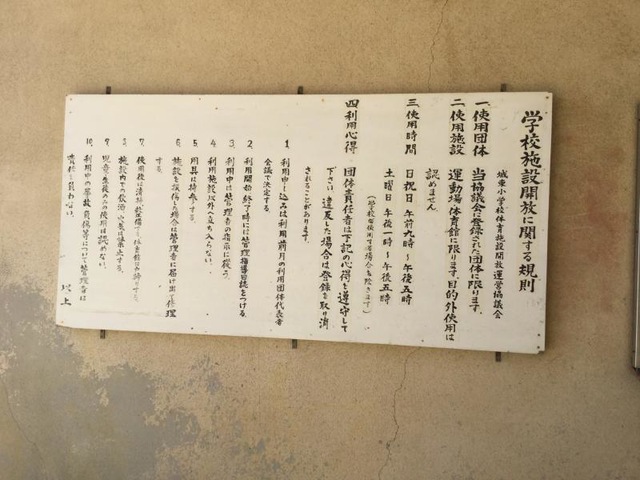 学校施設開放に関する規則
城東小学校体育施設開放運営協議会
一、使用団体 当協議会に登録された団体に限ります。
二、使用施設 運動場、体育館に限ります。目的外使用は
認めません。
三、使用時間 日祝日 午前九時〜午後五時
土曜日 午後一時〜午後五時
（学校が使用する場合を除きます）
四、利用心得 団体責任者は下記の心得を遵守して
下さい。違反した場合は登録を取り消
されることがあります。
1. 利用申し込みは利用前月の利用団体代表者
会議で決定する。
2. 利用開始、終了時には管理指導日誌をつける。
3. 利用中は管理者の指示に従う。
4. 利用施設以外へ立ち入らない。
5. 用具は持参する。
6. 施設を損傷した場合は管理者に届け出て修理
する。
7. 使用後は清掃、整備
8. 施設内での飲酒、火気は禁止する。
9. 児童、生徒のみの使用は認めない。
10. 利用中の事故、負傷等について管理者は
責任を負わない。
以上